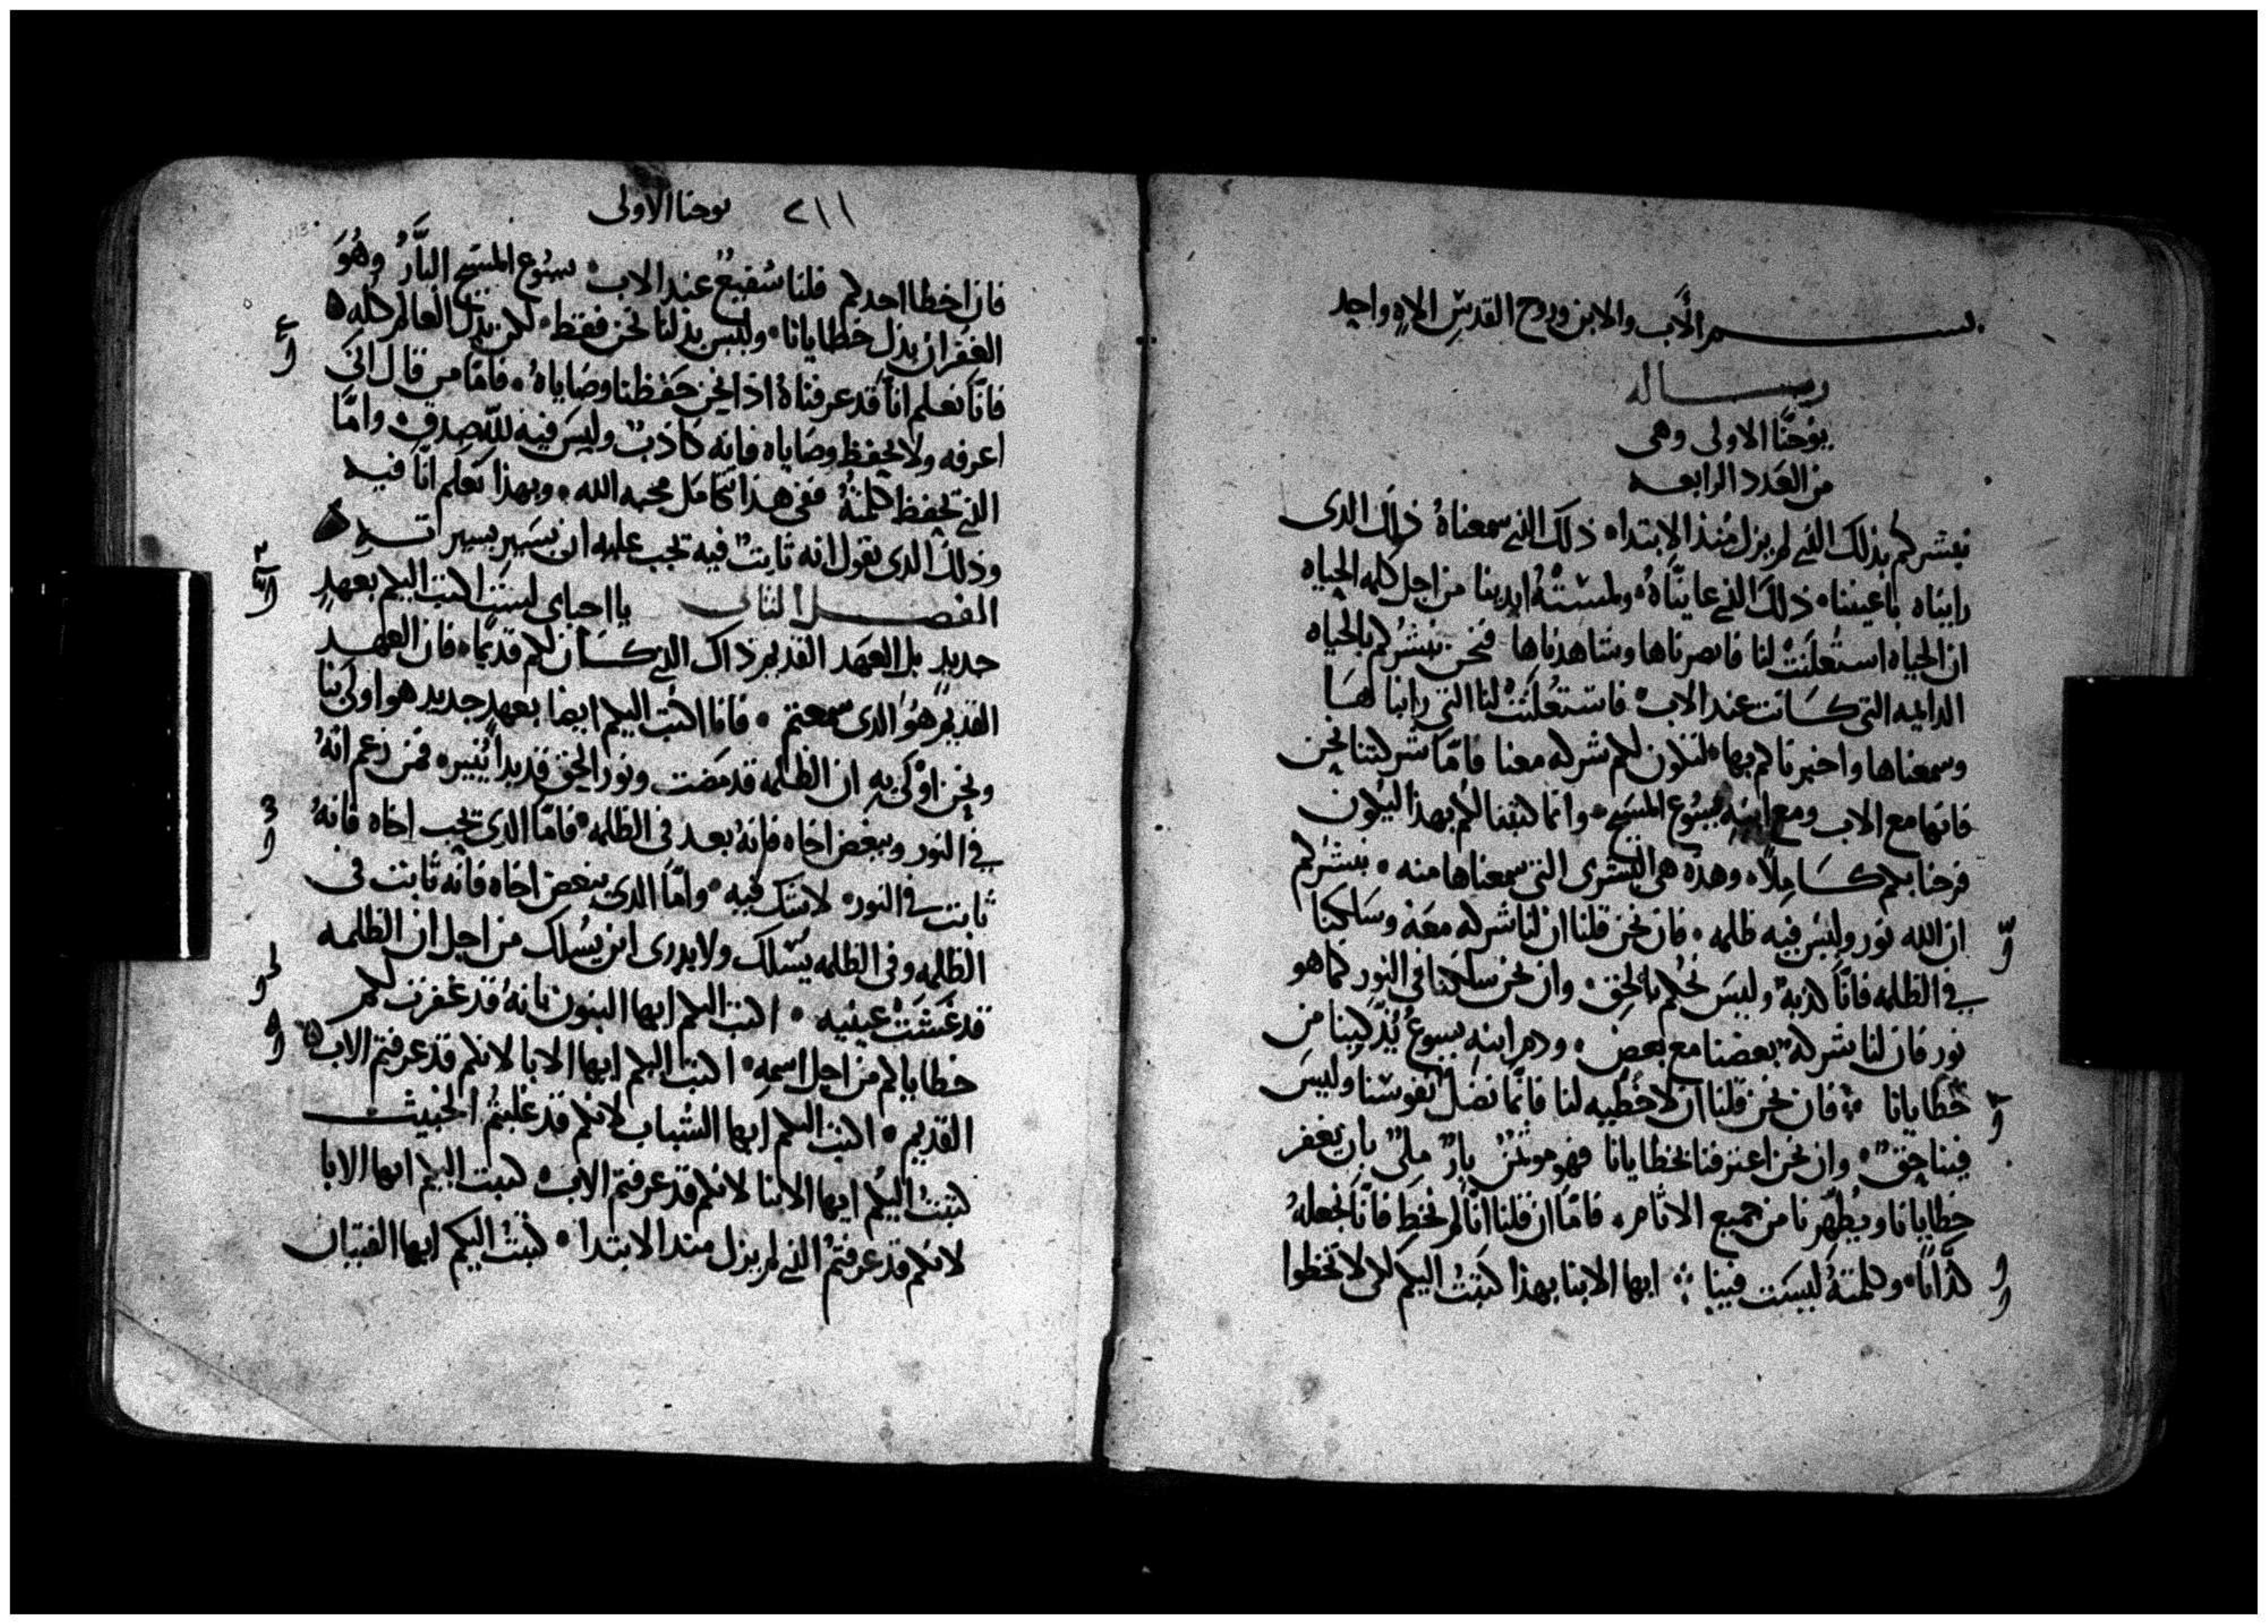 بسم الأب والابن وروح القدس الاه واحد
رساله
يوحنا الاولى وهى
من العدد الرابعه
نبشركم بذلك الذى لم يزل منذ الابتداء ذلك الذى سمعناهُ ذلك الدى
رايناه باعيننا ذلك الذى عايناهُ ولمستهُ ايدينا من اجل كلمه الحياه
ان الحياه استعلنت لنا فابصرناها وشاهدناها فنحن نبشركم بالحياه
الدايمه التى كانت عند الاب فاستعلنت لنا التى راينا لها
وسمعناها واخبرناكم بها لتكون لكم شركه معنا فامّا شركتنا نحن
فانها مع الاب ومع ابنه يسوع المسيح وانما كتبنا لكم بهذا ليكون
فرحنا بكم كاملاً وهذه هى البشرى التى سمعناها منه نبشركم
ان الله نور وليس فيه ظلمه فان نحن قلنا ان لنا شركه معه وسلكنا
فى الظلمه فانّا كذبه وليس نحكم بالحق وان نحن سلكنا فى النور كما هو
نور فان لنا شركه بعضنا مع بعض ودم ابنه يسوع يُذكينا من
خطايانا فان نحن قلنا ان لا خطيه لنا فانما نضل نفوسنا وليس
فينا حق وان نحن اعترفنا بخطايانا فهو موتمن بار ملى بان يغفر
خطايانا ويُطهّرنا من جميع الاثام فامّا ان قلنا انّا لم نخط فانّا نجعلهُ
كذّابًا وكلمتهُ ليست فينا ايها الابنا بهذا كتبتُ اليكم لكى لا تخطوا
٢١١ يوحنا الاولى
فان اخطا احدكم فلنا شفيعٌ عند الاب يسوع المسيح البارّ وهُو
الغفران بدل خطايانا وليس بدلنا نحن فقط لكن بدل العالم كله
فانّا نعلم انّا قد عرفناهُ اذا نحن حفظنا وصاياهُ فامّا من قال انى
اعرفه ولا يحفظ وصاياه فانه كاذب وليس فيه لله صدق وامّا
الذى يحفظ كلمتهُ ففى هذا تكامل محبه الله وبهذا نعلم انّا فيه
وذلك الدى يقول انه ثابت فيه يجب عليه ان يسير بسيرته
الفصل الثانى يا احباى ليس اكتب اليكم بعهدٍ
جديدٍ بل العهد القديم ذاك الذى كان لكم قديمًا فان العهد
القديم هُو الدى سمعتم فانا اكتب اليكم ايضا بعهدٍ جديد هو اولى بنا
ونحن اولى به ان الظلمه قد مضت ونور الحق قد بدا يُنير فمن زعم انهُ
فى النور ويبغض اخاه فانهُ بعد فى الظلمه فامّا الدى يحب اخاه فانهُ
ثابت فى النور لا شك فيه وامّا الدى يبغض اخاه فانه ثابت فى
الظلمه وفى الظلمه يسلك ولا يدرى اين يسلك من اجل ان الظلمه
قد غشت عينيه اكتب اليكم ايها البنون بانهُ قد غفرت لكم
خطاياكم من اجل اسمه اكتب اليكم ايها الابا لانكم قد عرفتم الاب
القديم اكتب اليكم ايها الشباب لانكم قد غلبتم الخبيث
كتبتُ اليكم ايها الابنا لانكم قد عرفتم الاب كتبت اليكم ايها الابا
لانكم قد عرفتم الذى لم يزل منذ الابتدا كتبتُ اليكم ايها الفتيان